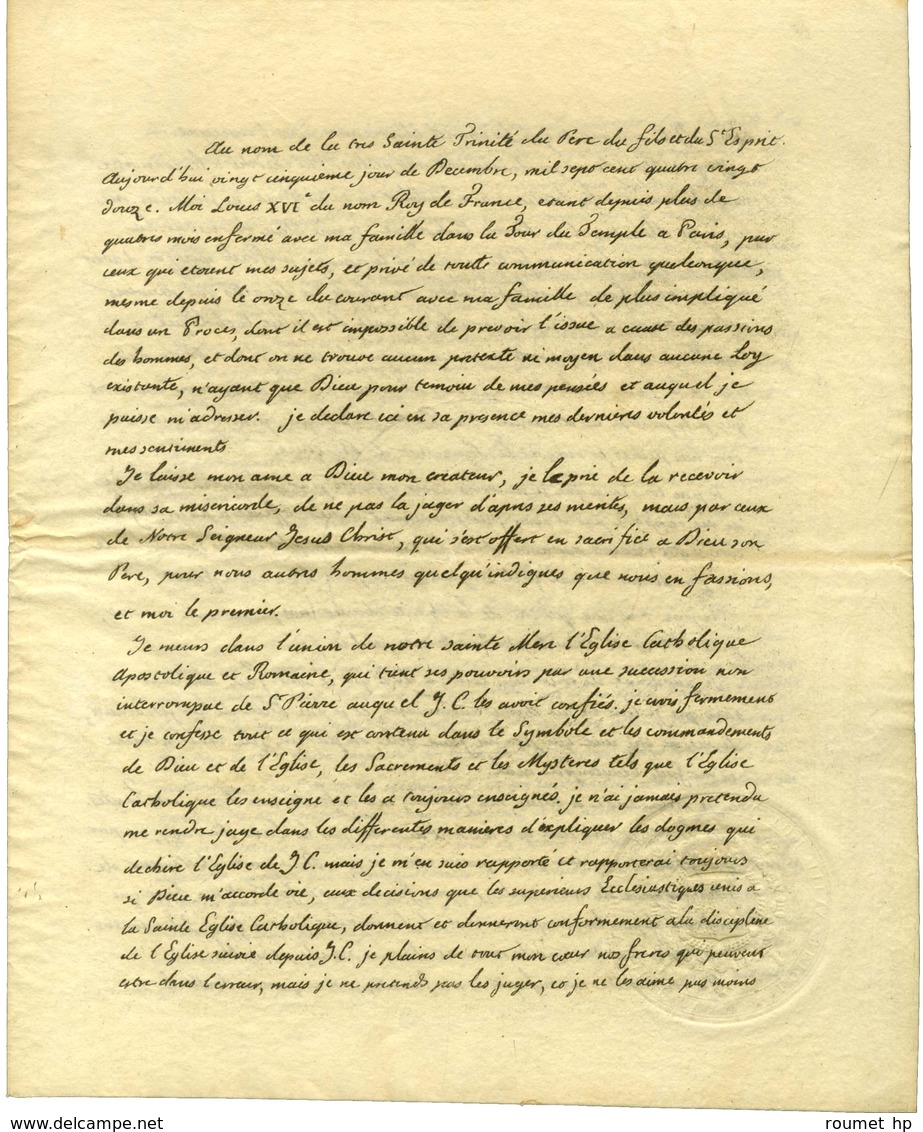 Au nom de la tres Sainte Trinité du Pere du fils et du St Esprit.
Aujourd'hui vingt cinquieme jour de Decembre, mil sept cent quatre vingt
douze. Moi Louis XVIe du nom Roy de France, etant depuis plus de
quatres mois enfermé avec ma famille dans la Tour du Temple a Paris, par
ceux qui etoient mes sujets, et privé de toutte communication quelconque,
mesme depuis le onze du courant avec ma famille de plus impliqué
dans un Proces, dont il est impossible de prevoir l'issue a cause des passions
des hommes, et dont on ne trouve aucun pretexte ni moyen dans aucune Loy
existante, n'ayant que Dieu pour temoin de mes pensées et auquel je
puisse m'adresser. je declare ici en sa presence mes dernieres volontés et
mes sentiments
Je laisse mon ame a Dieu mon createur, je le prie de la recevoir
dans sa misericorde, de ne pas la juger d'apres ses merites, mais par ceux
de Notre Seigneur Jesus Christ, qui s'est offert en sacrifice a Dieu son
Pere, pour nous autres hommes quelqu'indignes que nous en fussions,
et moi le premier.
Je meurs dans l'union de notre sainte Mere l'Eglise Catholique
Apostolique et Romaine, qui tient ses pouvoirs par une succession non
interrompue de St Pierre auquel J.C. les avoit confiés. je crois fermement
et je confesse tout ce qui est contenu dans le Symbole et les commandements
de Dieu et de l'Eglise, les Sacrements et les Mysteres tels que l'Eglise
Catholique les enseigne et les a toujours enseignés. je n'ai jamais pretendu
me rendre juge dans les differentes manieres d'expliquer les dogmes qui
dechire l'Eglise de J.C. mais je m'en suis rapporté et rapporterai toujours
si Dieu m'accorde vie, aux decisions que les superieurs Ecclesiastiques unis a
la Sainte Eglise Catholique, donnent et donneront conformement a la discipline
de l'Eglise suivie depuis J.C. je plains de tout mon cœur nos freres qui peuvent
estre dans l'erreur, mais je ne pretends pas les juger, et je ne les aime pas moins
roumet hp